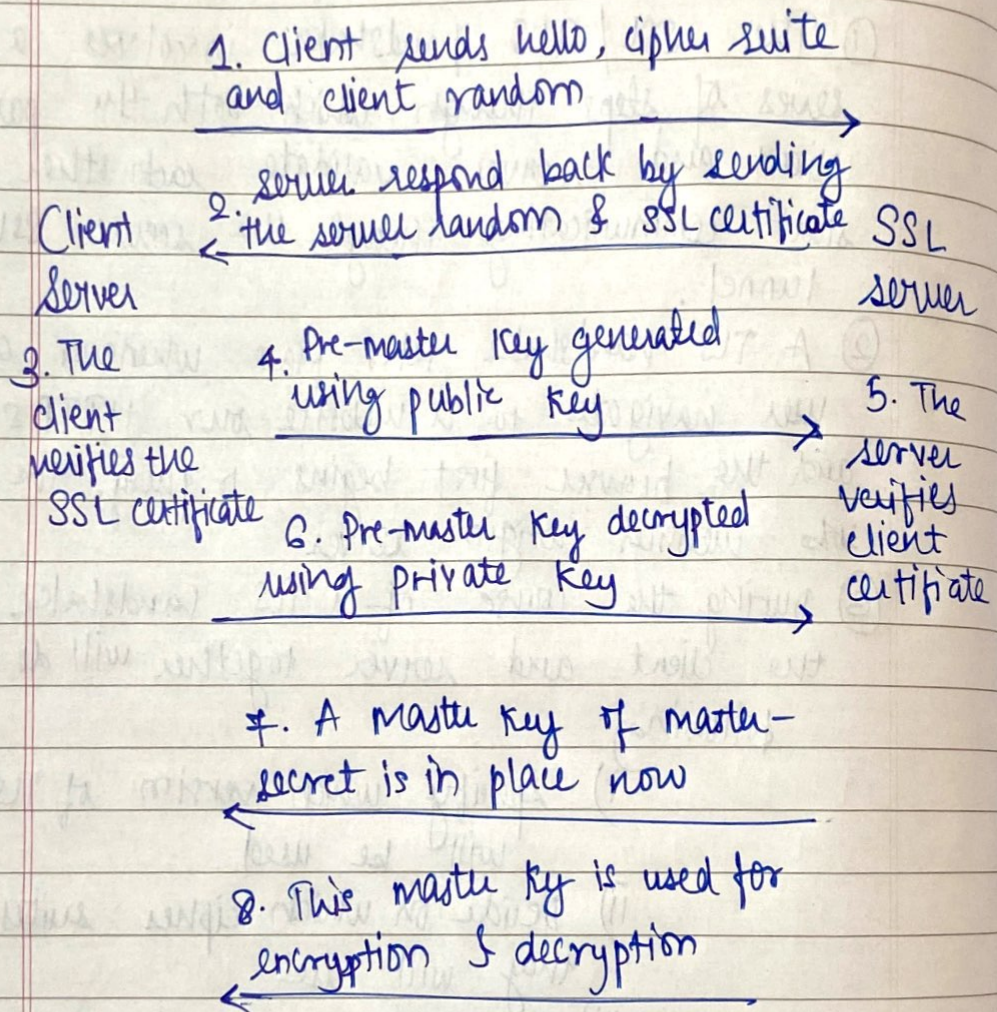 1. Client sends hello, cipher suite
and client random
2. server respond back by sending
the server random & SSL certificate
Client
Server
SSL
server
3. The
client
verifies the
SSL certificate
4. Pre-master Key generated
using public Key
5. The
server
verifies
client
certifiate
6. Pre-master Key decrypted
using private Key
7. A Master Key of master-
secret is in place now
8. This master Ky is used for
encryption & decryption